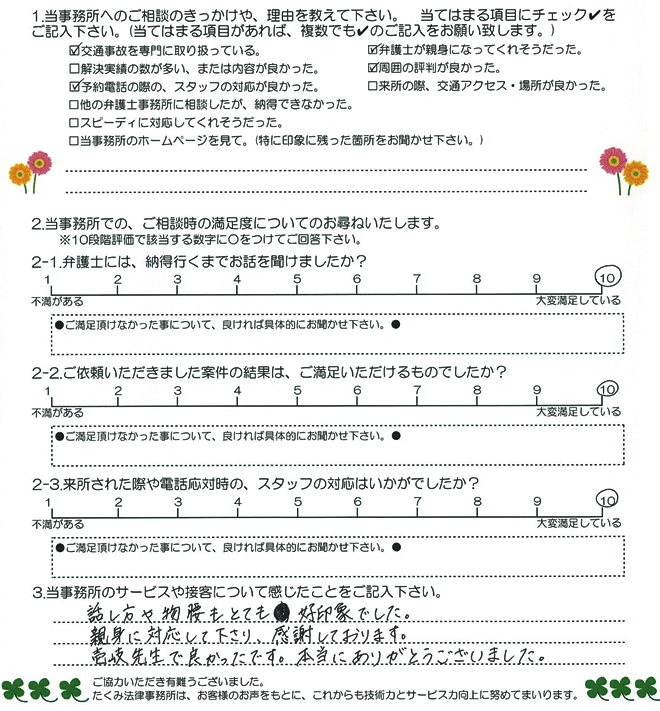 1.当事務所へのご相談のきっかけや、理由を教えて下さい。　当てはまる項目にチェック✔を
ご記入下さい。(当てはまる項目があれば、複数でも✔のご記入をお願い致します。)
☑交通事故を専門に取り扱っている。　☑弁護士が親身になってくれそうだった。
☐解決実績の数が多い、または内容が良かった。　☑周囲の評判が良かった。
☑予約電話の際の、スタッフの対応が良かった。　☐来所の際、交通アクセス・場所が良かった。
☐他の弁護士事務所に相談したが、納得できなかった。
☐スピーディに対応してくれそうだった。
☐当事務所のホームページを見て。(特に印象に残った箇所をお聞かせ下さい。)
2.当事務所での、ご相談時の満足度についてのお尋ねいたします。
※10段階評価で該当する数字に○をつけてご回答下さい。
2-1.弁護士には、納得行くまでお話を聞けましたか？
1 2 3 4 5 6 7 8 9 10
不満がある　大変満足している
●ご満足頂けなかった事について、良ければ具体的にお聞かせ下さい。●
2-2.ご依頼いただきました案件の結果は、ご満足いただけるものでしたか？
1 2 3 4 5 6 7 8 9 10
不満がある　大変満足している
●ご満足頂けなかった事について、良ければ具体的にお聞かせ下さい。●
2-3.来所された際や電話応対時の、スタッフの対応はいかがでしたか？
1 2 3 4 5 6 7 8 9 10
不満がある　大変満足している
●ご満足頂けなかった事について、良ければ具体的にお聞かせ下さい。●
3.当事務所のサービスや接客について感じたことをご記入下さい。
話し方や物腰もとても好印象でした。
親身に対応して下さり、感謝しております。
壱岐先生で良かったです。本当にありがとうございました。
ご協力いただき有難うございました。
たくみ法律事務所は、お客様のお声をもとに、これからも技術力とサービス力向上に努めてまいります。